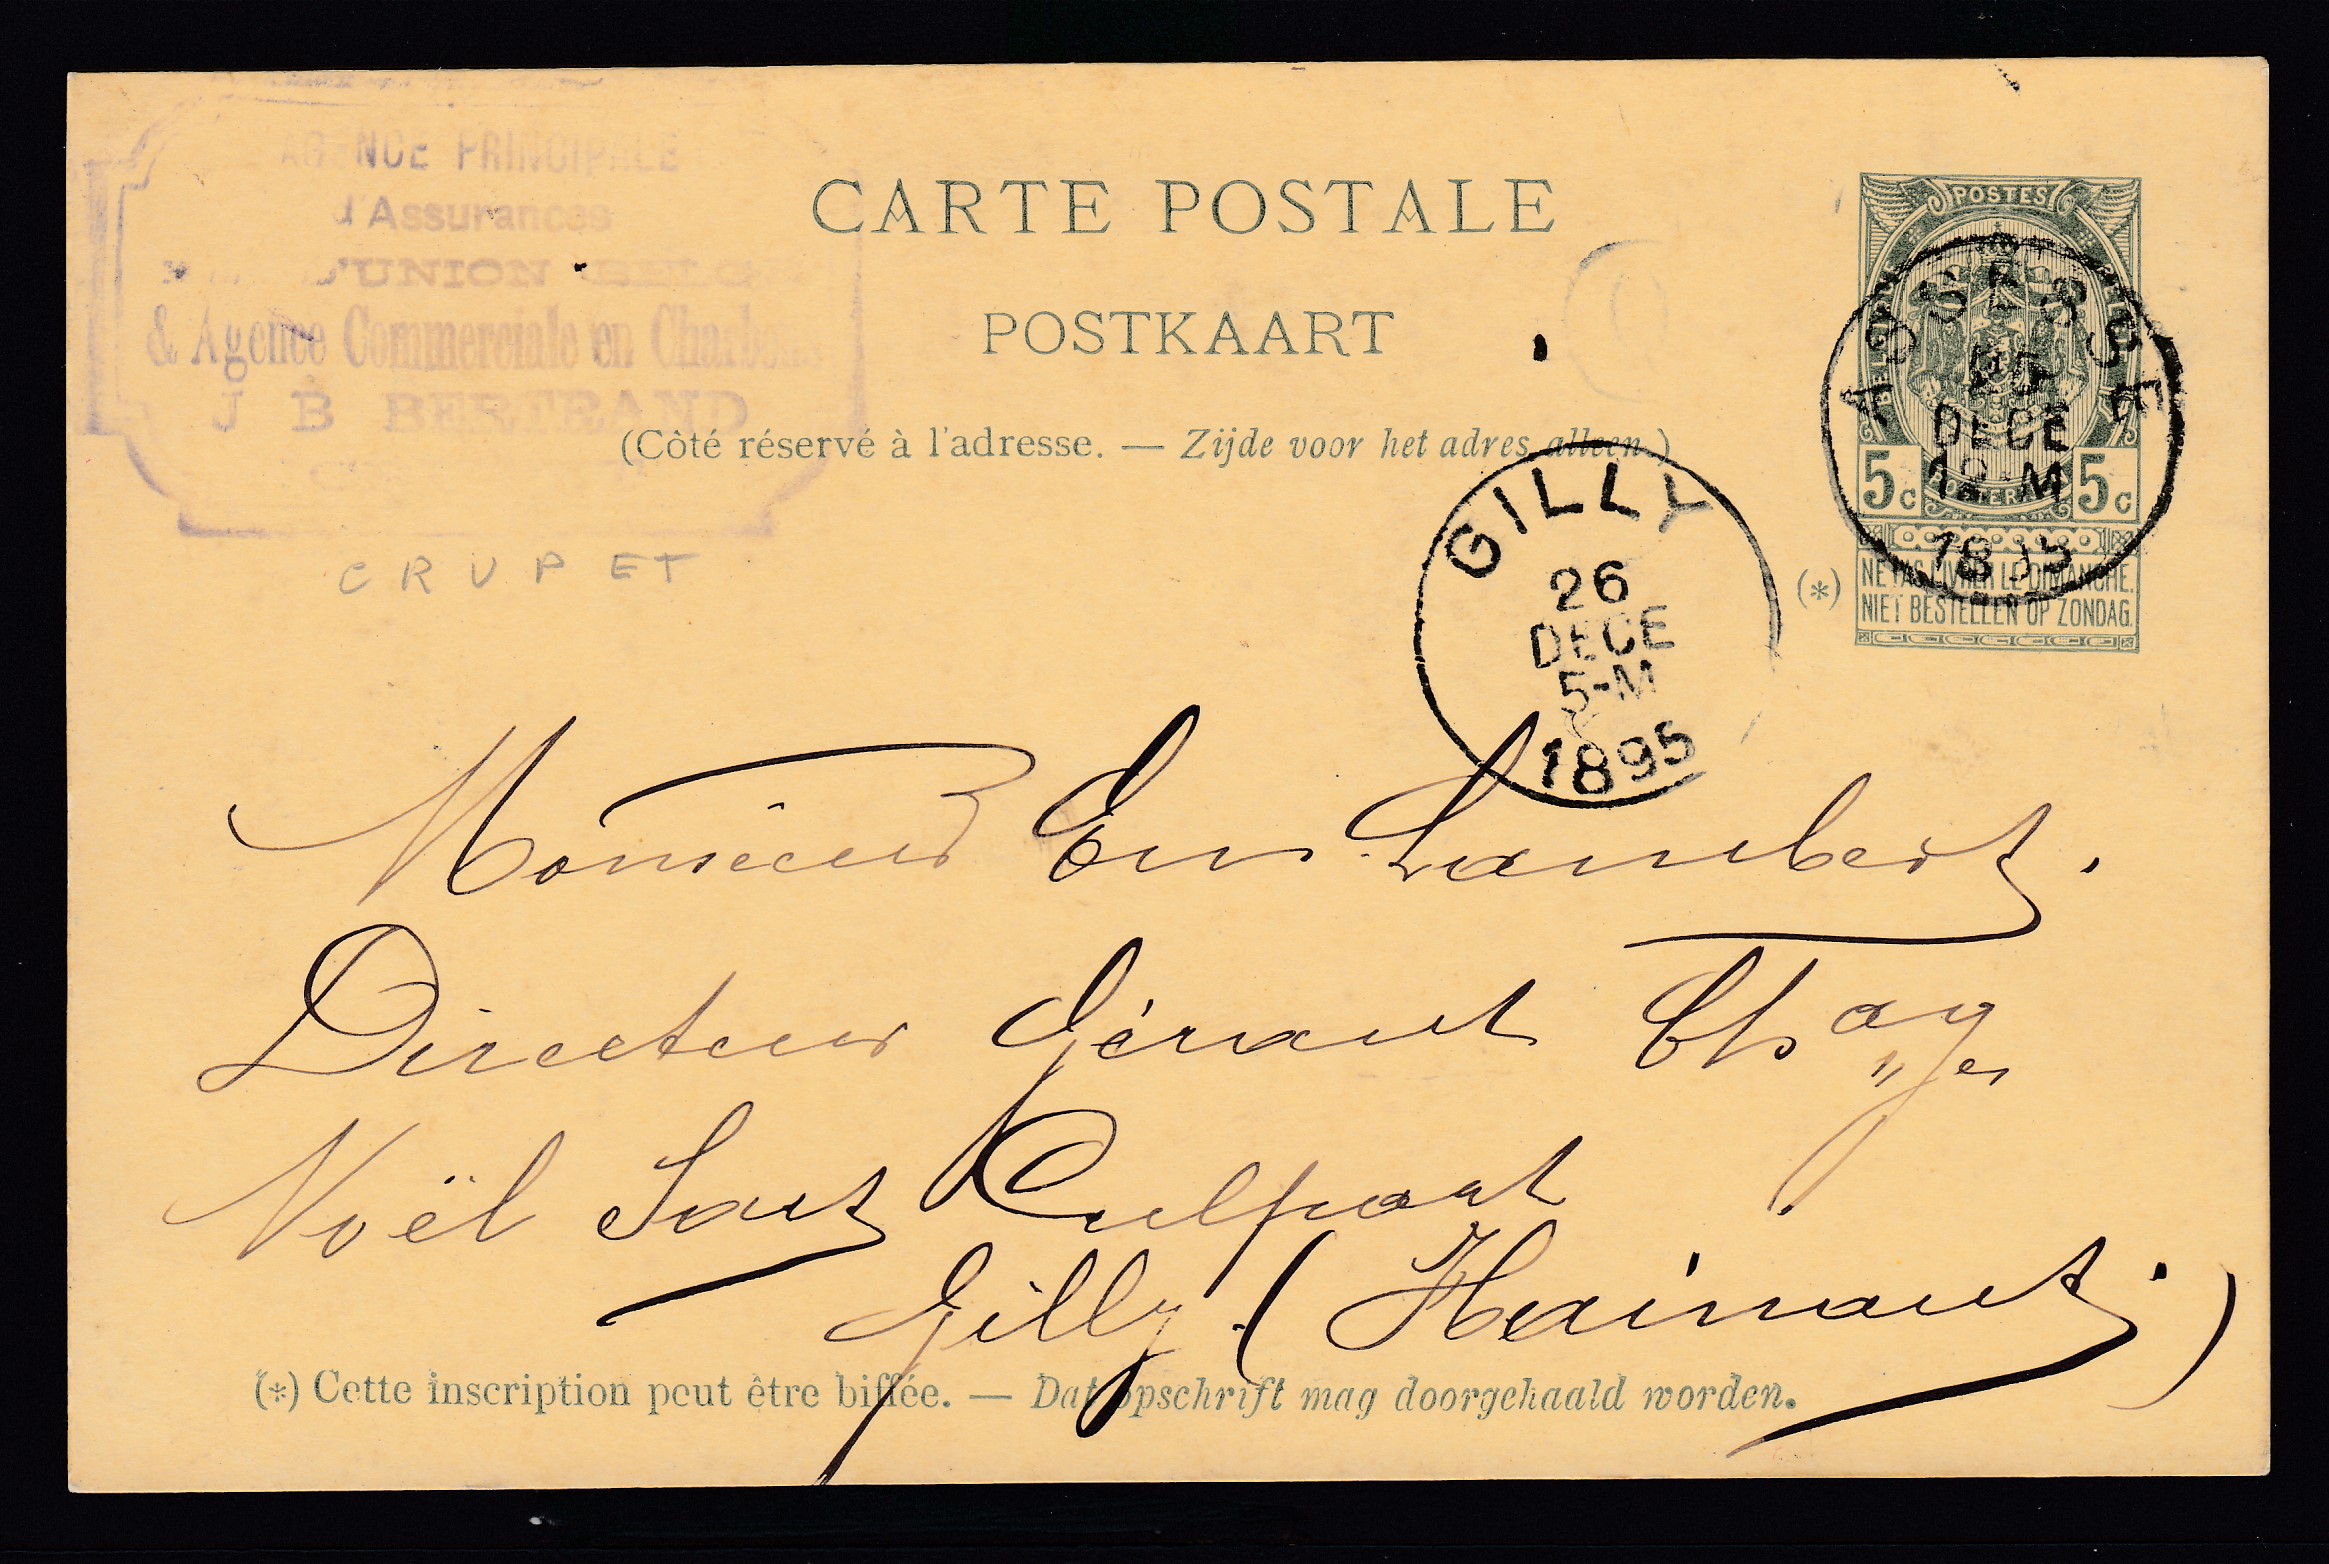 AGENCE PRINCIPALE
d'Assurances
L'UNION BELGE
& Agence Commerciale en Charbons
J B BERTRAND
CRUPET
CARTE POSTALE
POSTKAART
(Côté réservé à l'adresse. — Zijde voor het adres alleen.)
POSTES
5c 5c
NE PAS LIVRER LE DIMANCHE.
NIET BESTELLEN OP ZONDAG.
(*)
ASSESSE
25
DECE
12-M
1895
GILLY
26
DECE
5-M
1895
Monsieur Em Lambert.
Directeur Gérant Chages
Noël Sart Culpart
Gilly. (Hainaut)
(*) Cette inscription peut être biffée. — Dat opschrift mag doorgehaald worden.